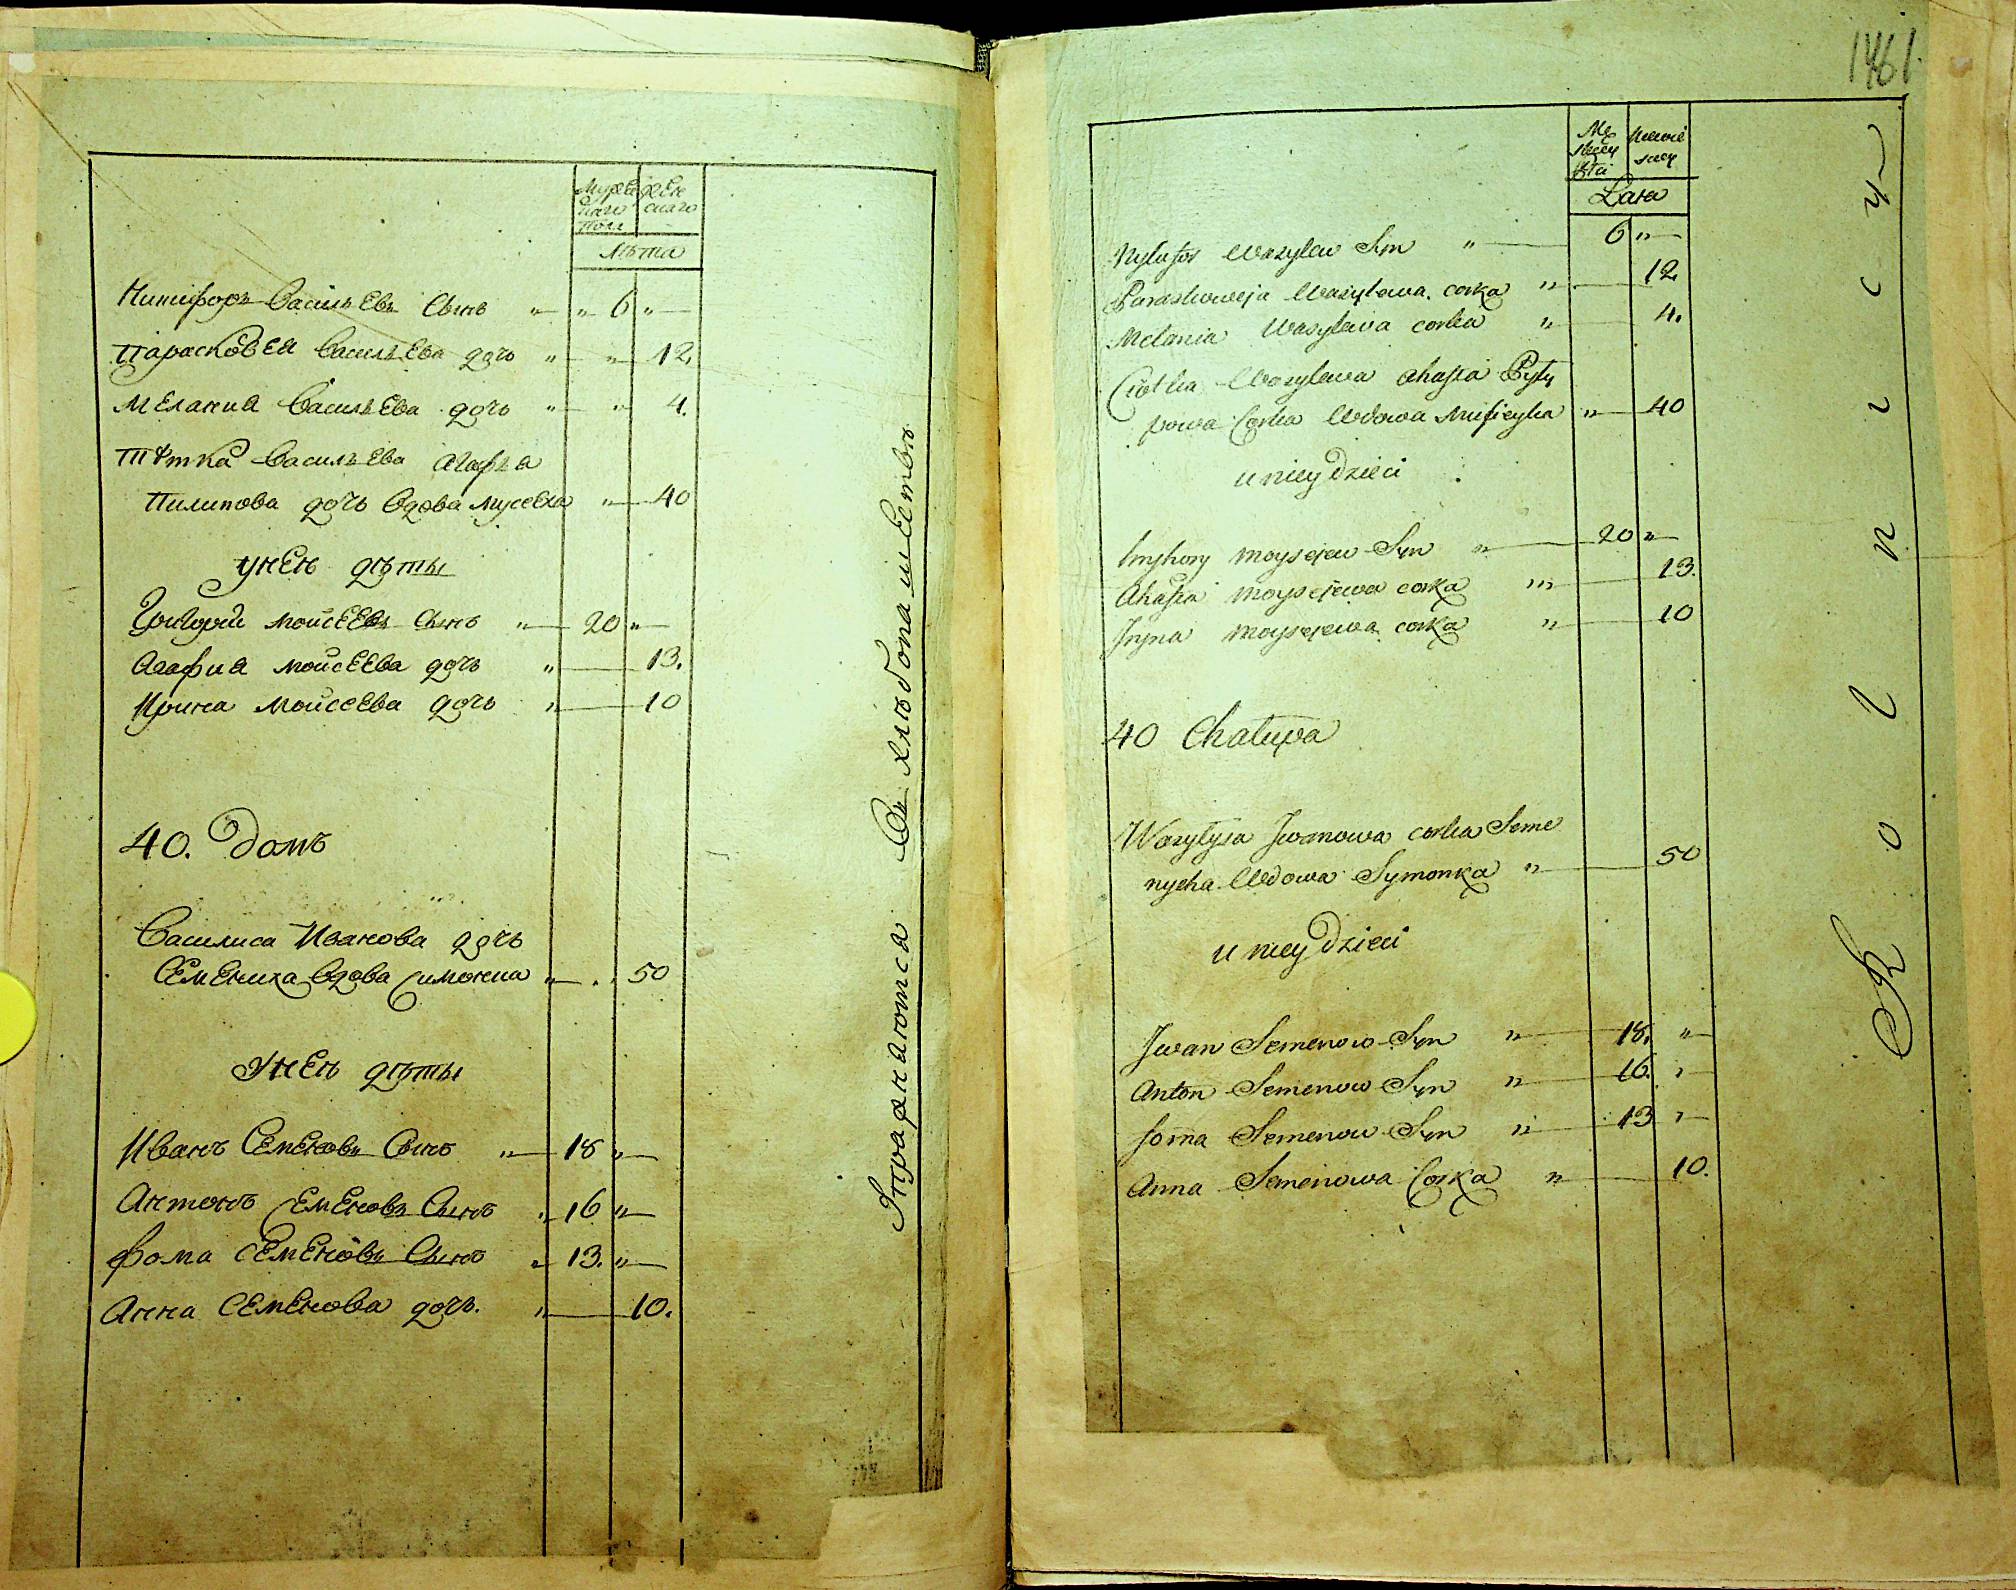 Мужеска пола
Женска
Лѣта
Никифоръ Васильевъ Сынъ " " 6 "
Парасковея Васильева дочь " " 12.
Мелания Васильева дочь " " 4.
Тіотка Васильева Агафья
Пилипова дочь Вдова Мусеева " 40
унеѣ дѣты
Григорій Моисеевъ Сынъ " 20 "
Агафия Моисеева дочь " 13.
Ирина Моисеева дочь " 10
40. Домъ
Василиса Иванова дочь
Семениха Вдова Симонка " 50
Унеѣ дѣты
Иванъ Семеновъ Сынъ " 18 "
Антонъ Семеновъ Сынъ " 16 "
Фома Семеновъ Сынъ " 13. "
Анна Семенова дочь. " 10.
Упражняются Въ хлѣбопашествѣ
1461.
Lata
Nykyfor Wasylew Syn " 6 "
Paraskoweja Wasylewa corka " 12
Melania Wasylewa corka " 4.
Ciotka Wasylewa Ahafia Pyly
powa Corka Wdowa " 40
u niey Dzieci
Hryhory Moysejew Syn " 20 "
Ahafia Moysejewa corka " 13.
Iryna Moysejewa corka " 10
40 Chalupa
Wasylysa Iwanowa corka Seme
nycha Wdowa Symonka " 50
u niey Dzieci
Iwan Semenow Syn " 18. "
Anton Semenow Syn " 16. "
Foma Semenow Syn " 13 "
Anna Semenowa Corka " 10.
Rolnicy